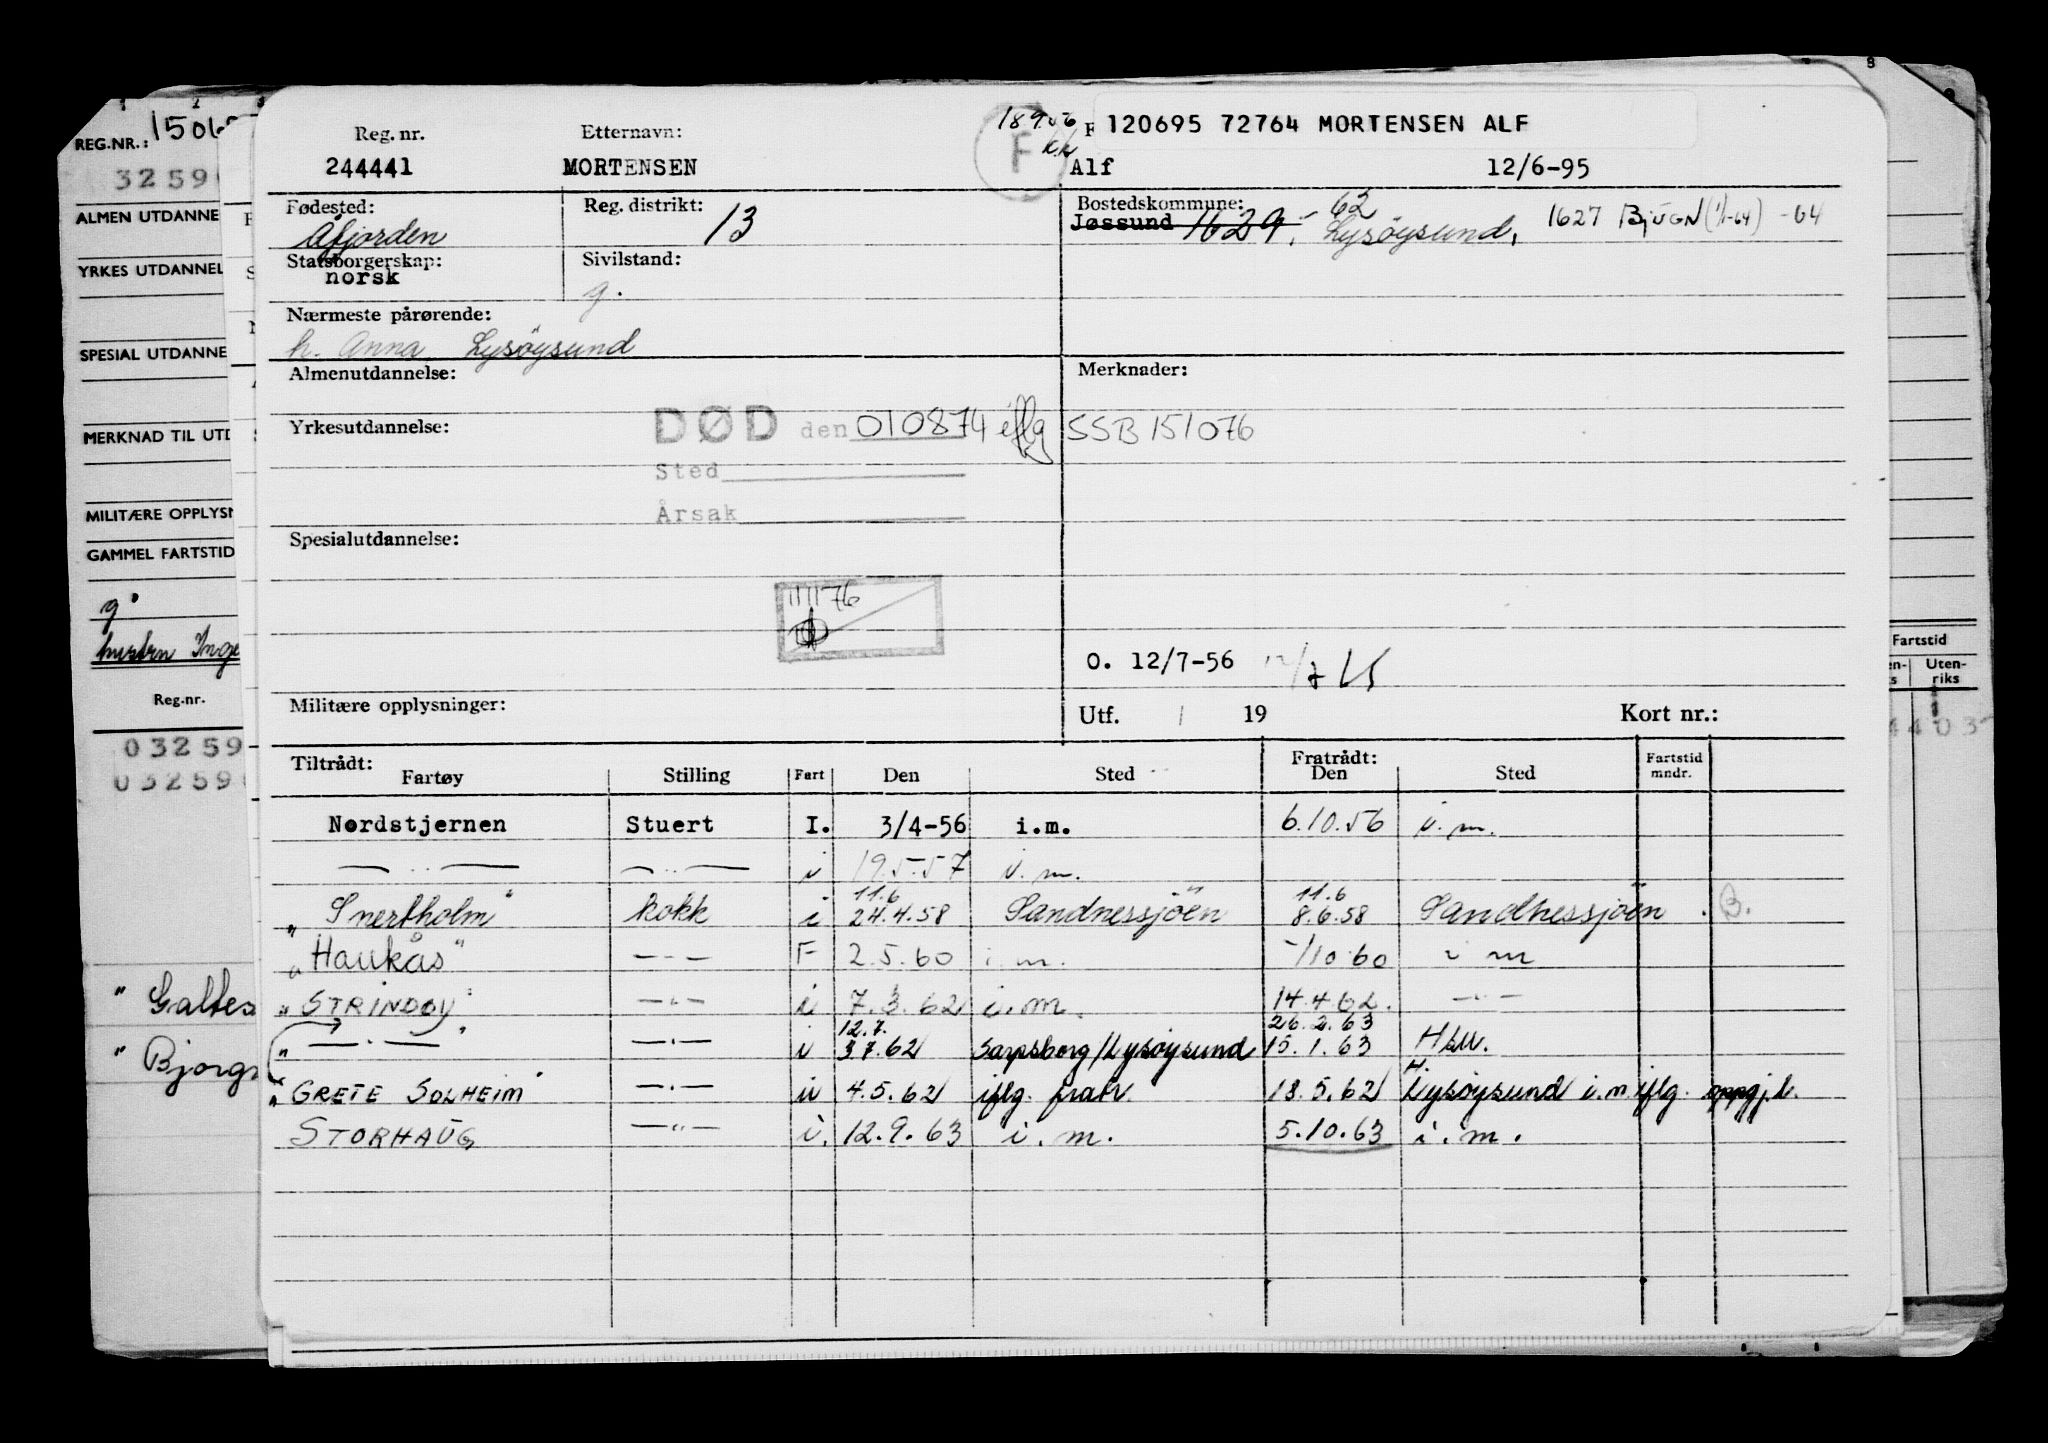 REG.NR.:
32590
ALMEN UTDANNE
YRKES UTDANNEL
SPESIAL UTDANNE
MERKNAD TIL UTD
MILITÆRE OPPLYSN
GAMMEL FARTSTID
g.
hustru Inge
Reg.nr.
03259
03259
" Galtes
" Bjorgs
Reg. nr. Etternavn: 18.9.56 F 120695 72764 MORTENSEN ALF
244441 MORTENSEN F Alf 12/6-95
Fødested: Reg. distrikt: Bostedskommune:
Åfjorden 13 Jøssund 1629, - 62 Lysøysund, 1627 BJUGN (1/1-64) -64
Statsborgerskap: Sivilstand:
norsk g.
Nærmeste pårørende:
h. Anna Lysøysund
Almenutdannelse: Merknader:
Yrkesutdannelse: DØD den 010874 iflg SSB 151076
Sted
Årsak
Spesialutdannelse:
11/1 76
O. 12/7-56
Militære opplysninger: Utf. / 19 Kort nr.:
Tiltrådt: Fratrådt: Fartstid
Fartøy Stilling Fart Den Sted Den Sted mndr.
Nordstjernen Stuert I. 3/4-56 i.m. 6.10.56 i.m.
— .. — — .. — i 19.5.57 i.m.
11.6 11.6
"Snertholm" kokk i 24.4.58 Sandnessjöen 8.6.58 Sandnessjöen . B.
"Haukås" — - — F 2.5.60 i.m. -/10.60 i m
"STRINDØY" — " — i 7.3.62 i.m. 14.4.62. — " —
12.7. 26.2.63
" — . — " — . — i 3 7.62 Sarpsborg/Lysøysund 15.1.63 H&M.
"GRETE SOLHEIM" — . — u 4.5.62 iflg. fratr. 18.5.62 Lysøysund i.m. iflg. oppgj.l.
STORHAUG — " — i. 12.9.63 i.m. 5.10.63 i.m.
Fartstid
Uten-
riks